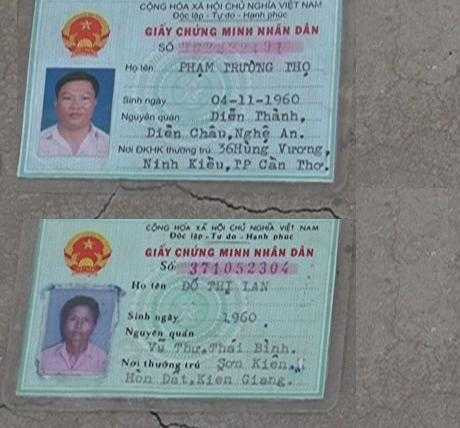 CỘNG HÒA XÃ HỘI CHỦ NGHĨA VIỆT NAM
Độc lập - Tự do - Hạnh phúc
GIẤY CHỨNG MINH NHÂN DÂN
SỐ
Họ tên PHẠM TRƯỜNG THỌ
Sinh ngày 04-11-1960
Nguyên quán Diễn Thành,
Diễn Châu,Nghệ An.
Nơi ĐKHK thường trú 36Hùng Vương,
Ninh Kiều,TP Cần Thơ.
CỘNG HÒA XÃ HỘI CHỦ NGHĨA VIỆT NAM
Độc lập - Tự do - Hạnh phúc
GIẤY CHỨNG MINH NHÂN DÂN
Số 371052304
Họ tên ĐỖ THỊ LAN
Sinh ngày 1960
Nguyên quán
Vũ Thư,Thái Bình.
Nơi thường trú Sơn Kiên,
Hòn Đất,Kiên Giang.